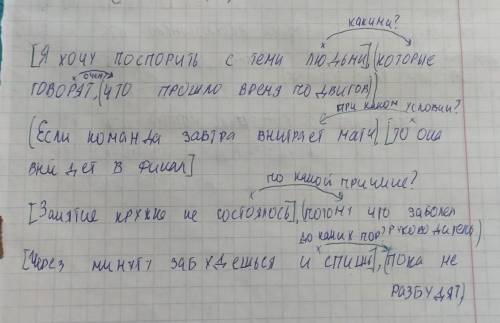 какими?
[Я хочу поспорить с теми людьми], (которые
о чём?
говорят, (что прошло время подвигов))
при каком условии?
(Если команда завтра выиграет матч), [то она
выйдет в финал]
по какой причине?
[Занятие кружка не состоялось], (потому что заболел
руководитель)
до каких пор?
[Через минуту забудешься и спишь], (пока не
разбудят)